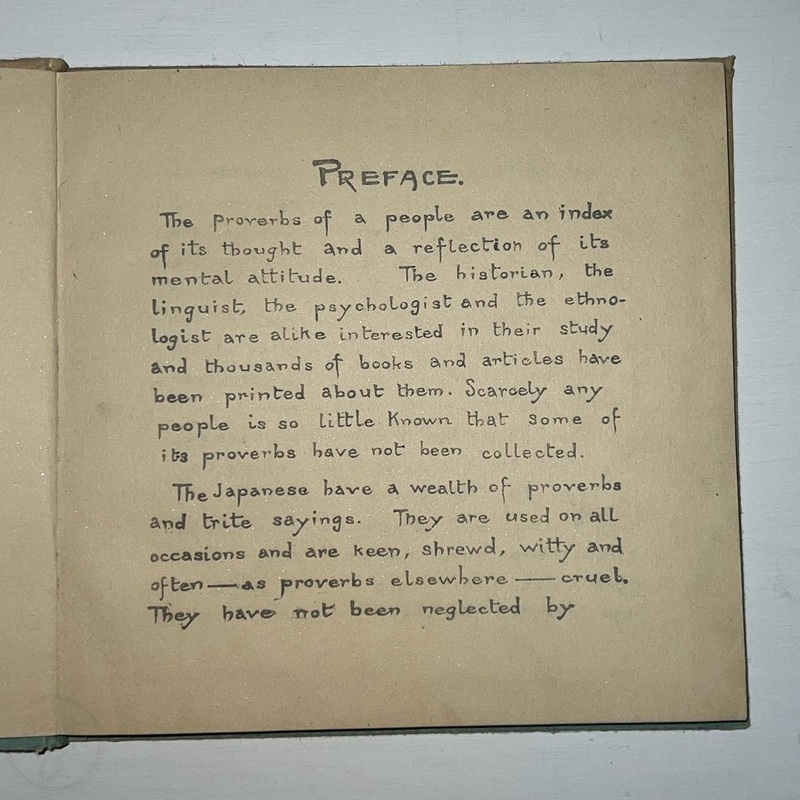 PREFACE.
The proverbs of a people are an index
of its thought and a reflection of its
mental attitude. The historian, the
linguist, the psychologist and the ethno-
logist are alike interested in their study
and thousands of books and articles have
been printed about them. Scarcely any
people is so little known that some of
its proverbs have not been collected.
The Japanese have a wealth of proverbs
and trite sayings. They are used on all
occasions and are keen, shrewd, witty and
often — as proverbs elsewhere — cruel.
They have not been neglected by